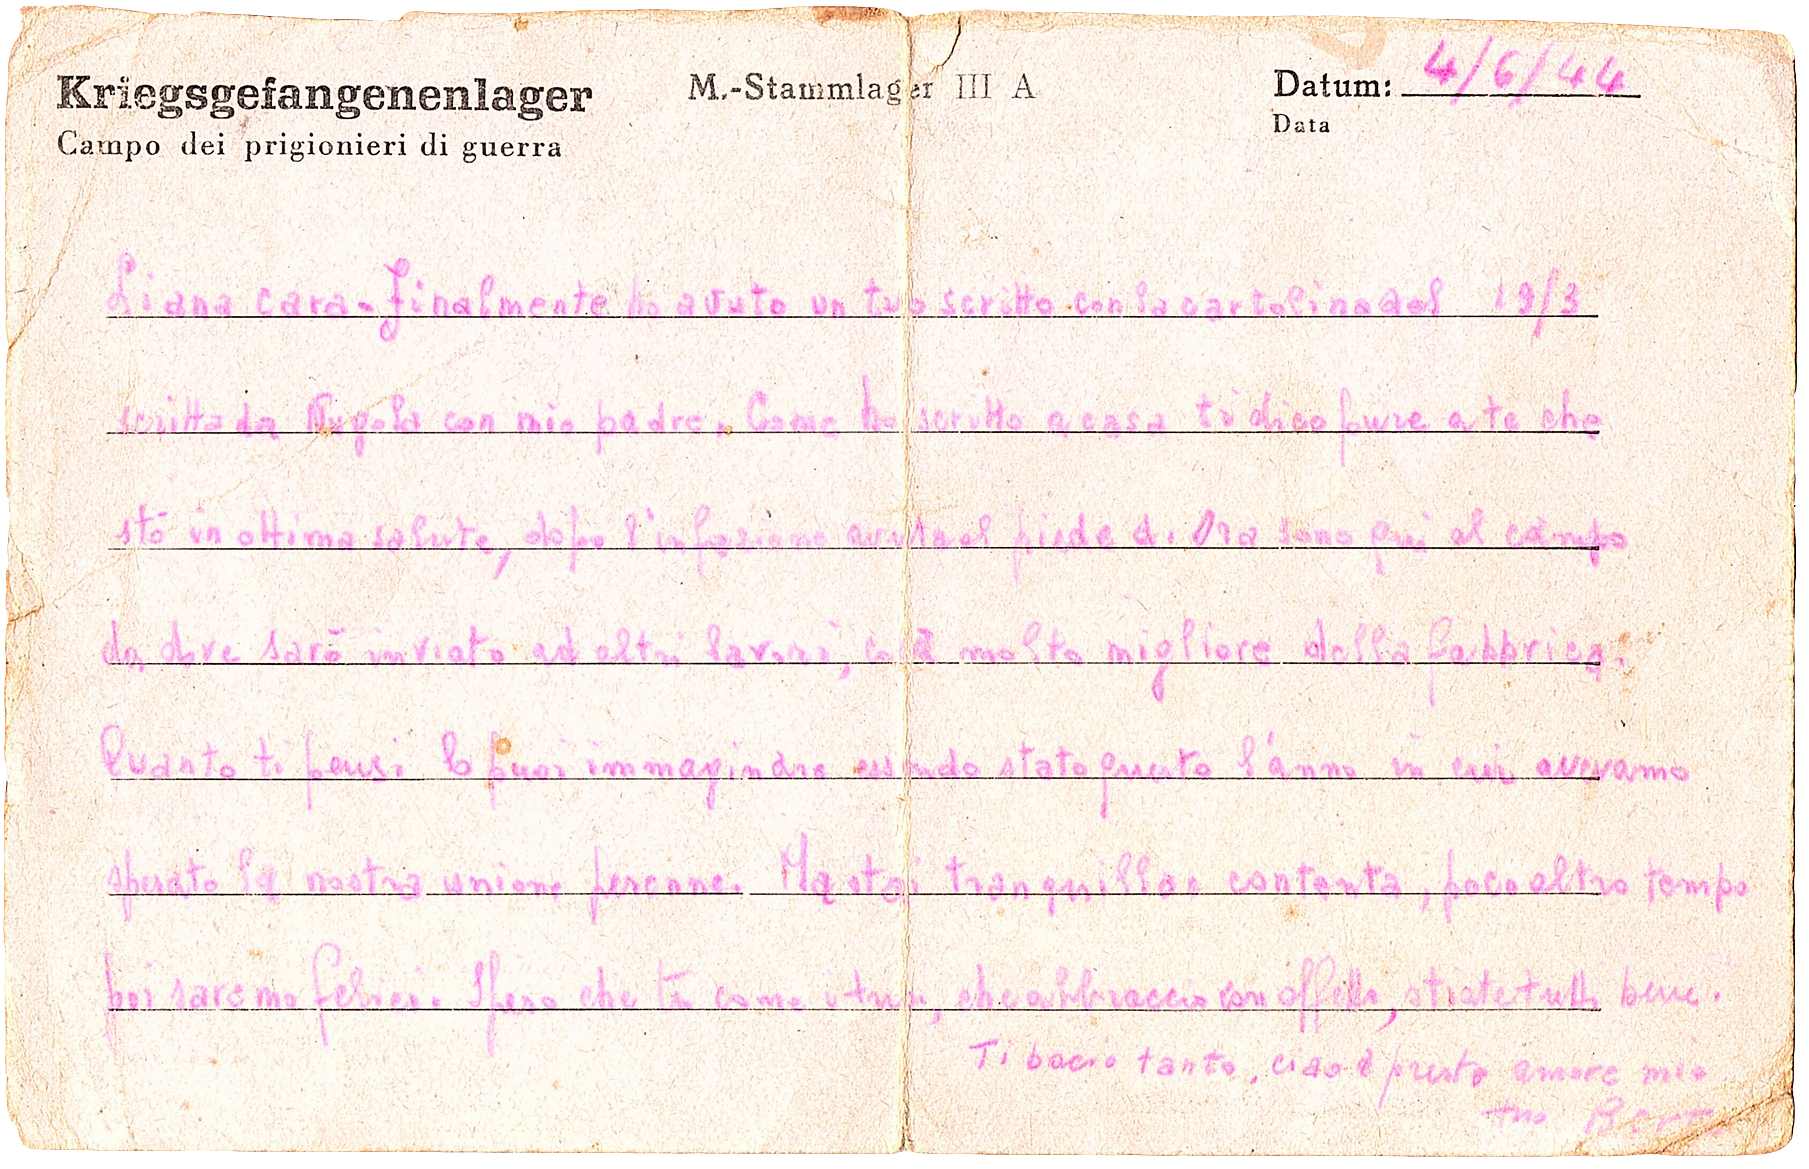 Kriegsgefangenenlager
M.-Stammlager III A
Datum: 4/6/44
Campo dei prigionieri di guerra
Data
Liana cara. Finalmente ho avuto un tuo scritto con la cartolina del 19/3
scritta da con mio padre. Come ho scritto a casa ti dico pure a te che
stò in ottima salute, dopo l'infezione avuta al piede d. Ora sono qui al campo
da dove sarò inviato ad altri lavori, molto migliore della fabbrica.
Quanto ti pensi lo puoi immaginare essendo stato questo l'anno in cui avevamo
sperato la nostra unione perenne. Ma stai tranquilla e contenta, poco altro tempo
poi saremo felici. Spero che tu come i tuoi, che abbraccio con affetto, stiate tutti bene.
Ti bacio tanto, ciao a presto amore mio
tuo